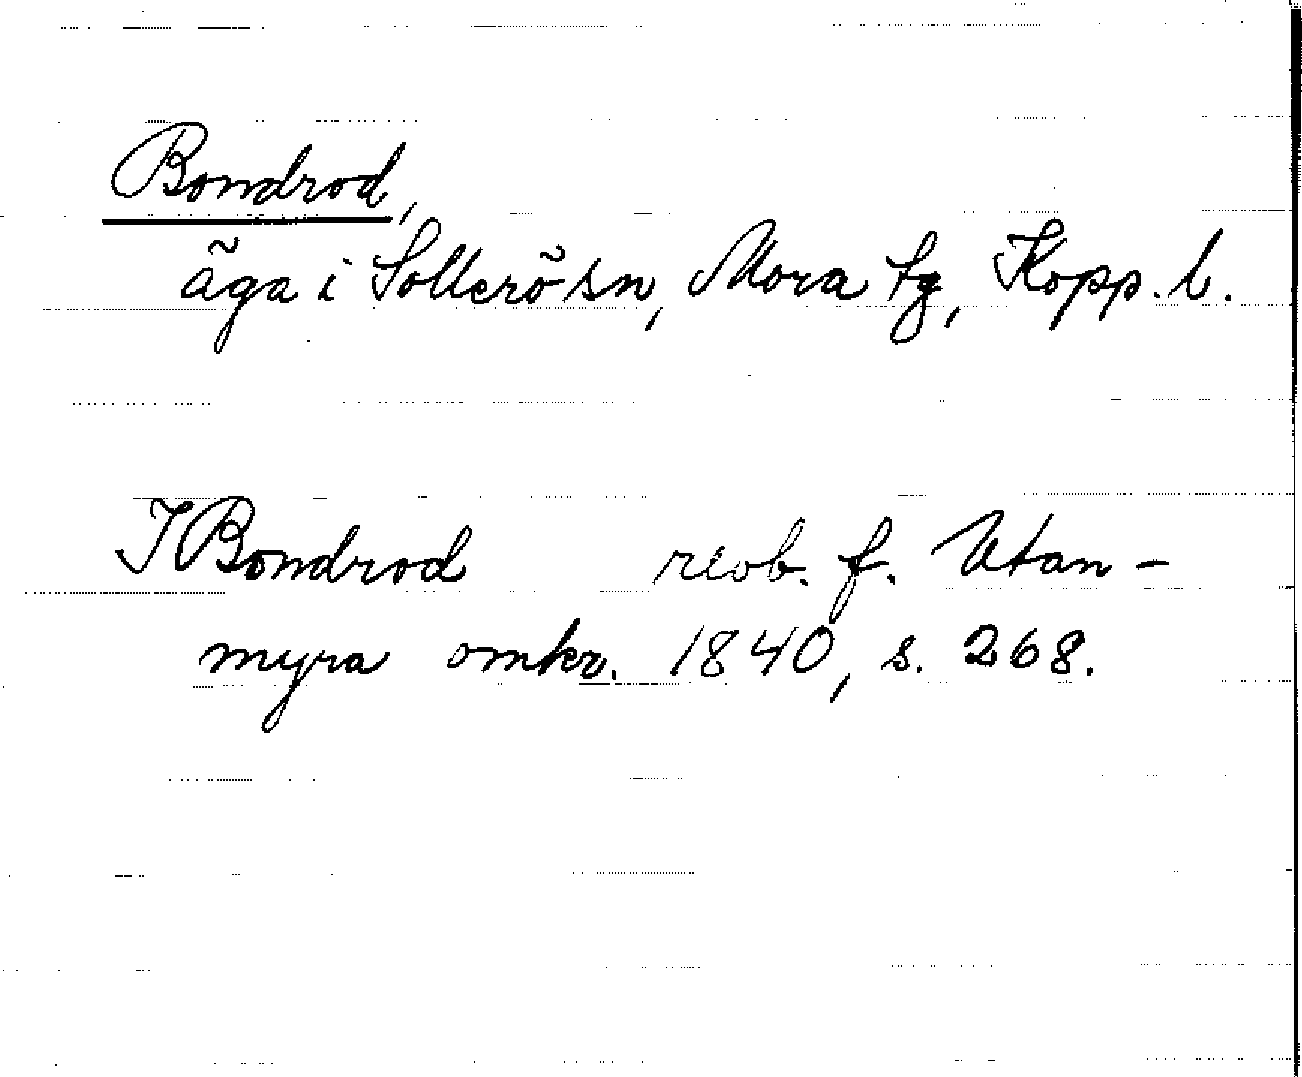 Bondrod,
äga i Sollerö sn, Mora tg, Kopp. l.
I Bondrod revb. f. Utan-
myra omkr. 1840, s. 268.